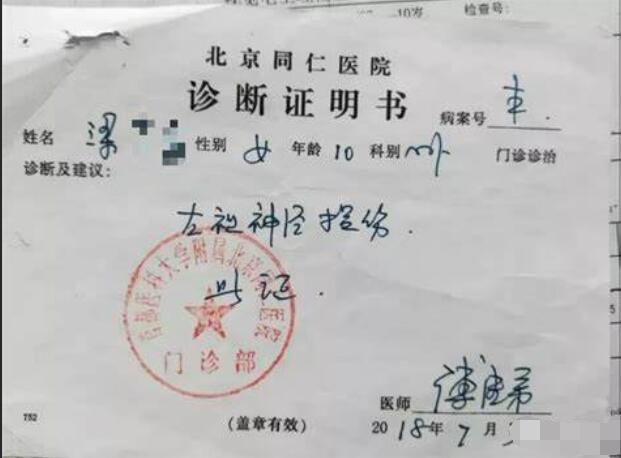 -10岁 检查号:
北京同仁医院
诊断证明书
病案号
姓名 梁 性别 女 年龄 10 科别 眼 门诊诊治
诊断及建议:
左视神经损伤.
此证.
首都医科大学附属北京同仁医院
门诊部
医师
752 (盖章有效) 2018年7月